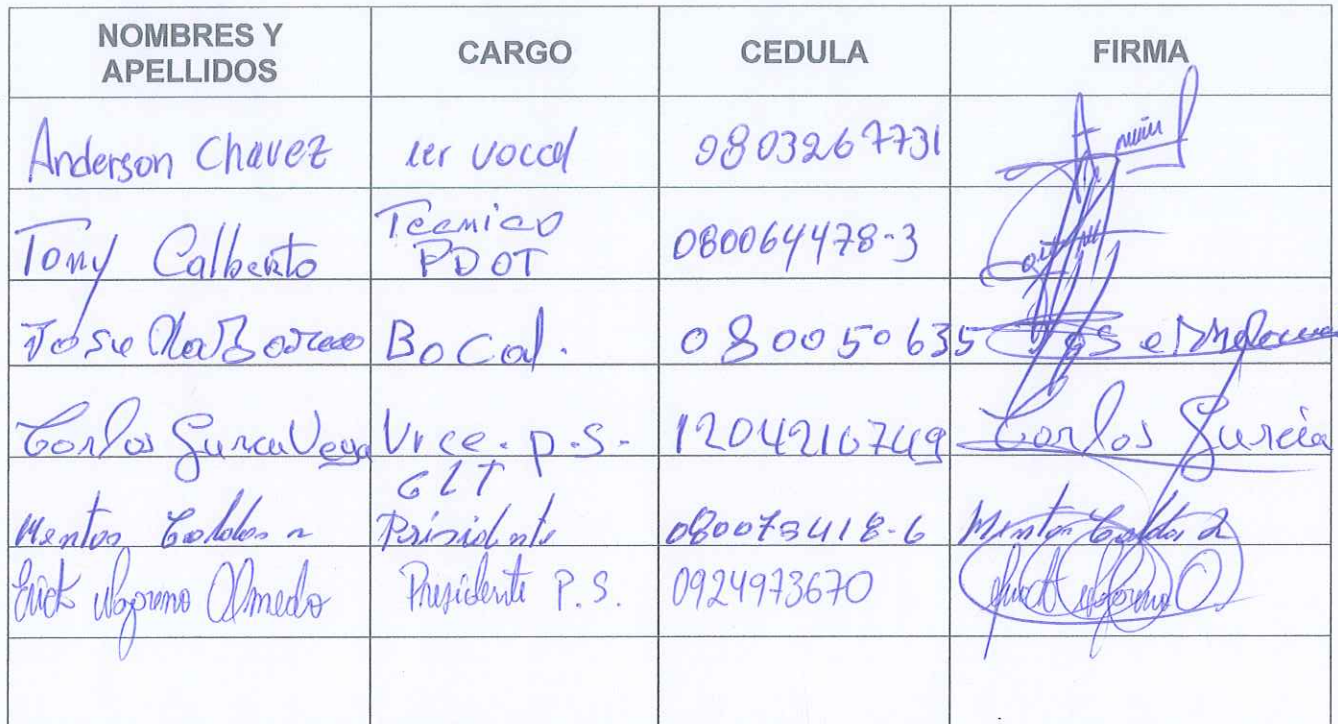 NOMBRES Y APELLIDOS CARGO CEDULA FIRMA
Anderson Chavez 1er vocal 0803267731
Tony Calberto Tecnico PDOT 080064478-3
Jose Bocal. 080050635 Jose
Carlos Vega Vice. p.s. 1204210749 Carlos Garcia
CLT Presidente 080073418-6
Erick Moreno Olmedo Presidente P.S. 0924973670